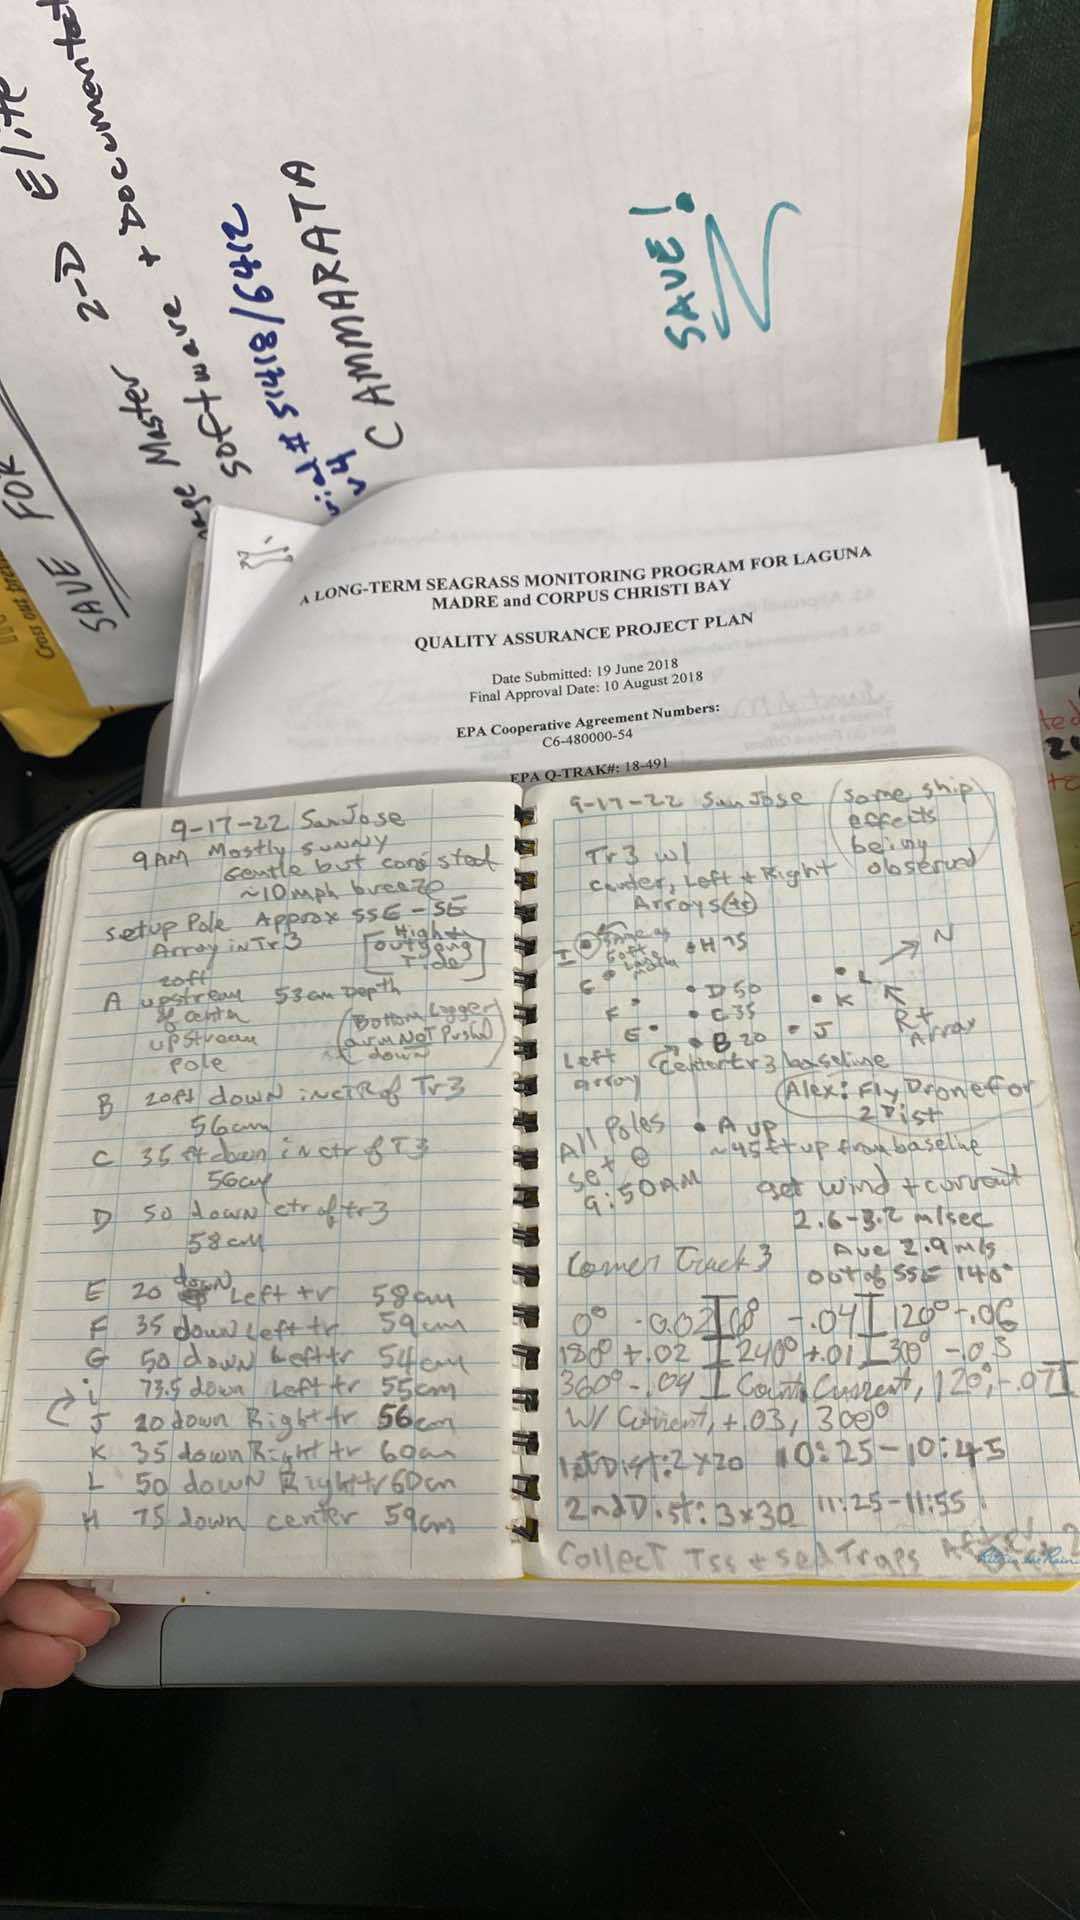 2-D Elite
+ Documentat
Master
software
# 51418/6412
v4
CAMMARATA
SAVE FOR
SAVE!
A LONG-TERM SEAGRASS MONITORING PROGRAM FOR LAGUNA
MADRE and CORPUS CHRISTI BAY
QUALITY ASSURANCE PROJECT PLAN
Date Submitted: 19 June 2018
Final Approval Date: 10 August 2018
EPA Cooperative Agreement Numbers:
C6-480000-54
EPA Q-TRAK#: 18-491
9-17-22 San Jose
9AM Mostly sunny
Gentle but consisted
~10mph breeze
setup Pole Approx SSE-SE
Array in Tr3
High +
outgoing
Tide
20ft
A upstream 53cm Depth
of center
upstream
pole
(Bottom Logger
arm NOT Pushed
down)
B 20ft down in CTR of Tr3
56cm
C 35 ft down in ctr of T3
56cm
D 50 down ctr of tr3
58cm
E 20 down Left tr 58cm
F 35 down Left tr. 59cm
G 50 down Left tr 54cm
i 73.5 down Left tr 55cm
J 20 down Right tr 56cm
K 35 down Right tr 60cm
L 50 down Right tr 60cm
H 75 down center 59cm
9-17-22 San Jose
(some ship
effects
being
observed
Tr3 w/
center, Left + Right
Arrays (ft)
I
Same as
H 75
N
G
D 50
L
F
C 35
K
E
B 20
J
Rt
Array
Left
array
Center tr3 baseline
Alex: Fly Drone for
2 Dist
All Poles
set @
9:50AM
A up
~45ft up from baseline
get wind + current
2.6-3.2 m/sec
Ave 2.9 m/s
out of SSE 140°
Comer Track 3
0° -0.02 -.04 120° -.06
180° +.02 240° +.01 -.03
360° -.04 Count. Current, 120°, -.07
W/ Current, +.03, 300°
1st Dist: 2x20 10:25-10:45
2nd Dist: 3x30 11:25-11:55
Collect Tss + sed Traps
Rite in the Rain